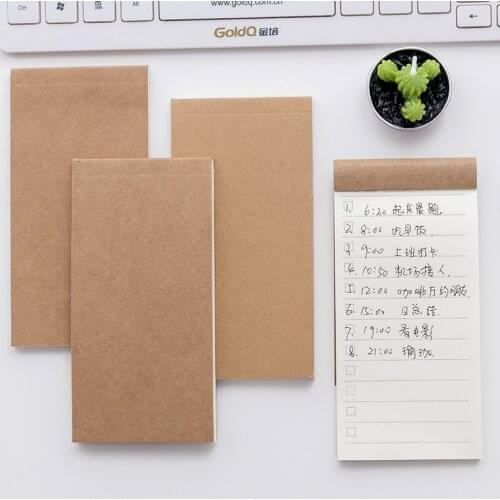 Ctrl
Alt
Alt
Ctrl
www.goldq.com.cn
GoldQ 金培
1. 6:30 起床晨跑.
2. 8:00 吃早饭
3. 9:00 上班打卡
4. 10:50 机场接人.
5. 12:00 咖啡厅约
6. 15:00 日总结
7. 19:00 看电影
8. 21:00 瑜珈.